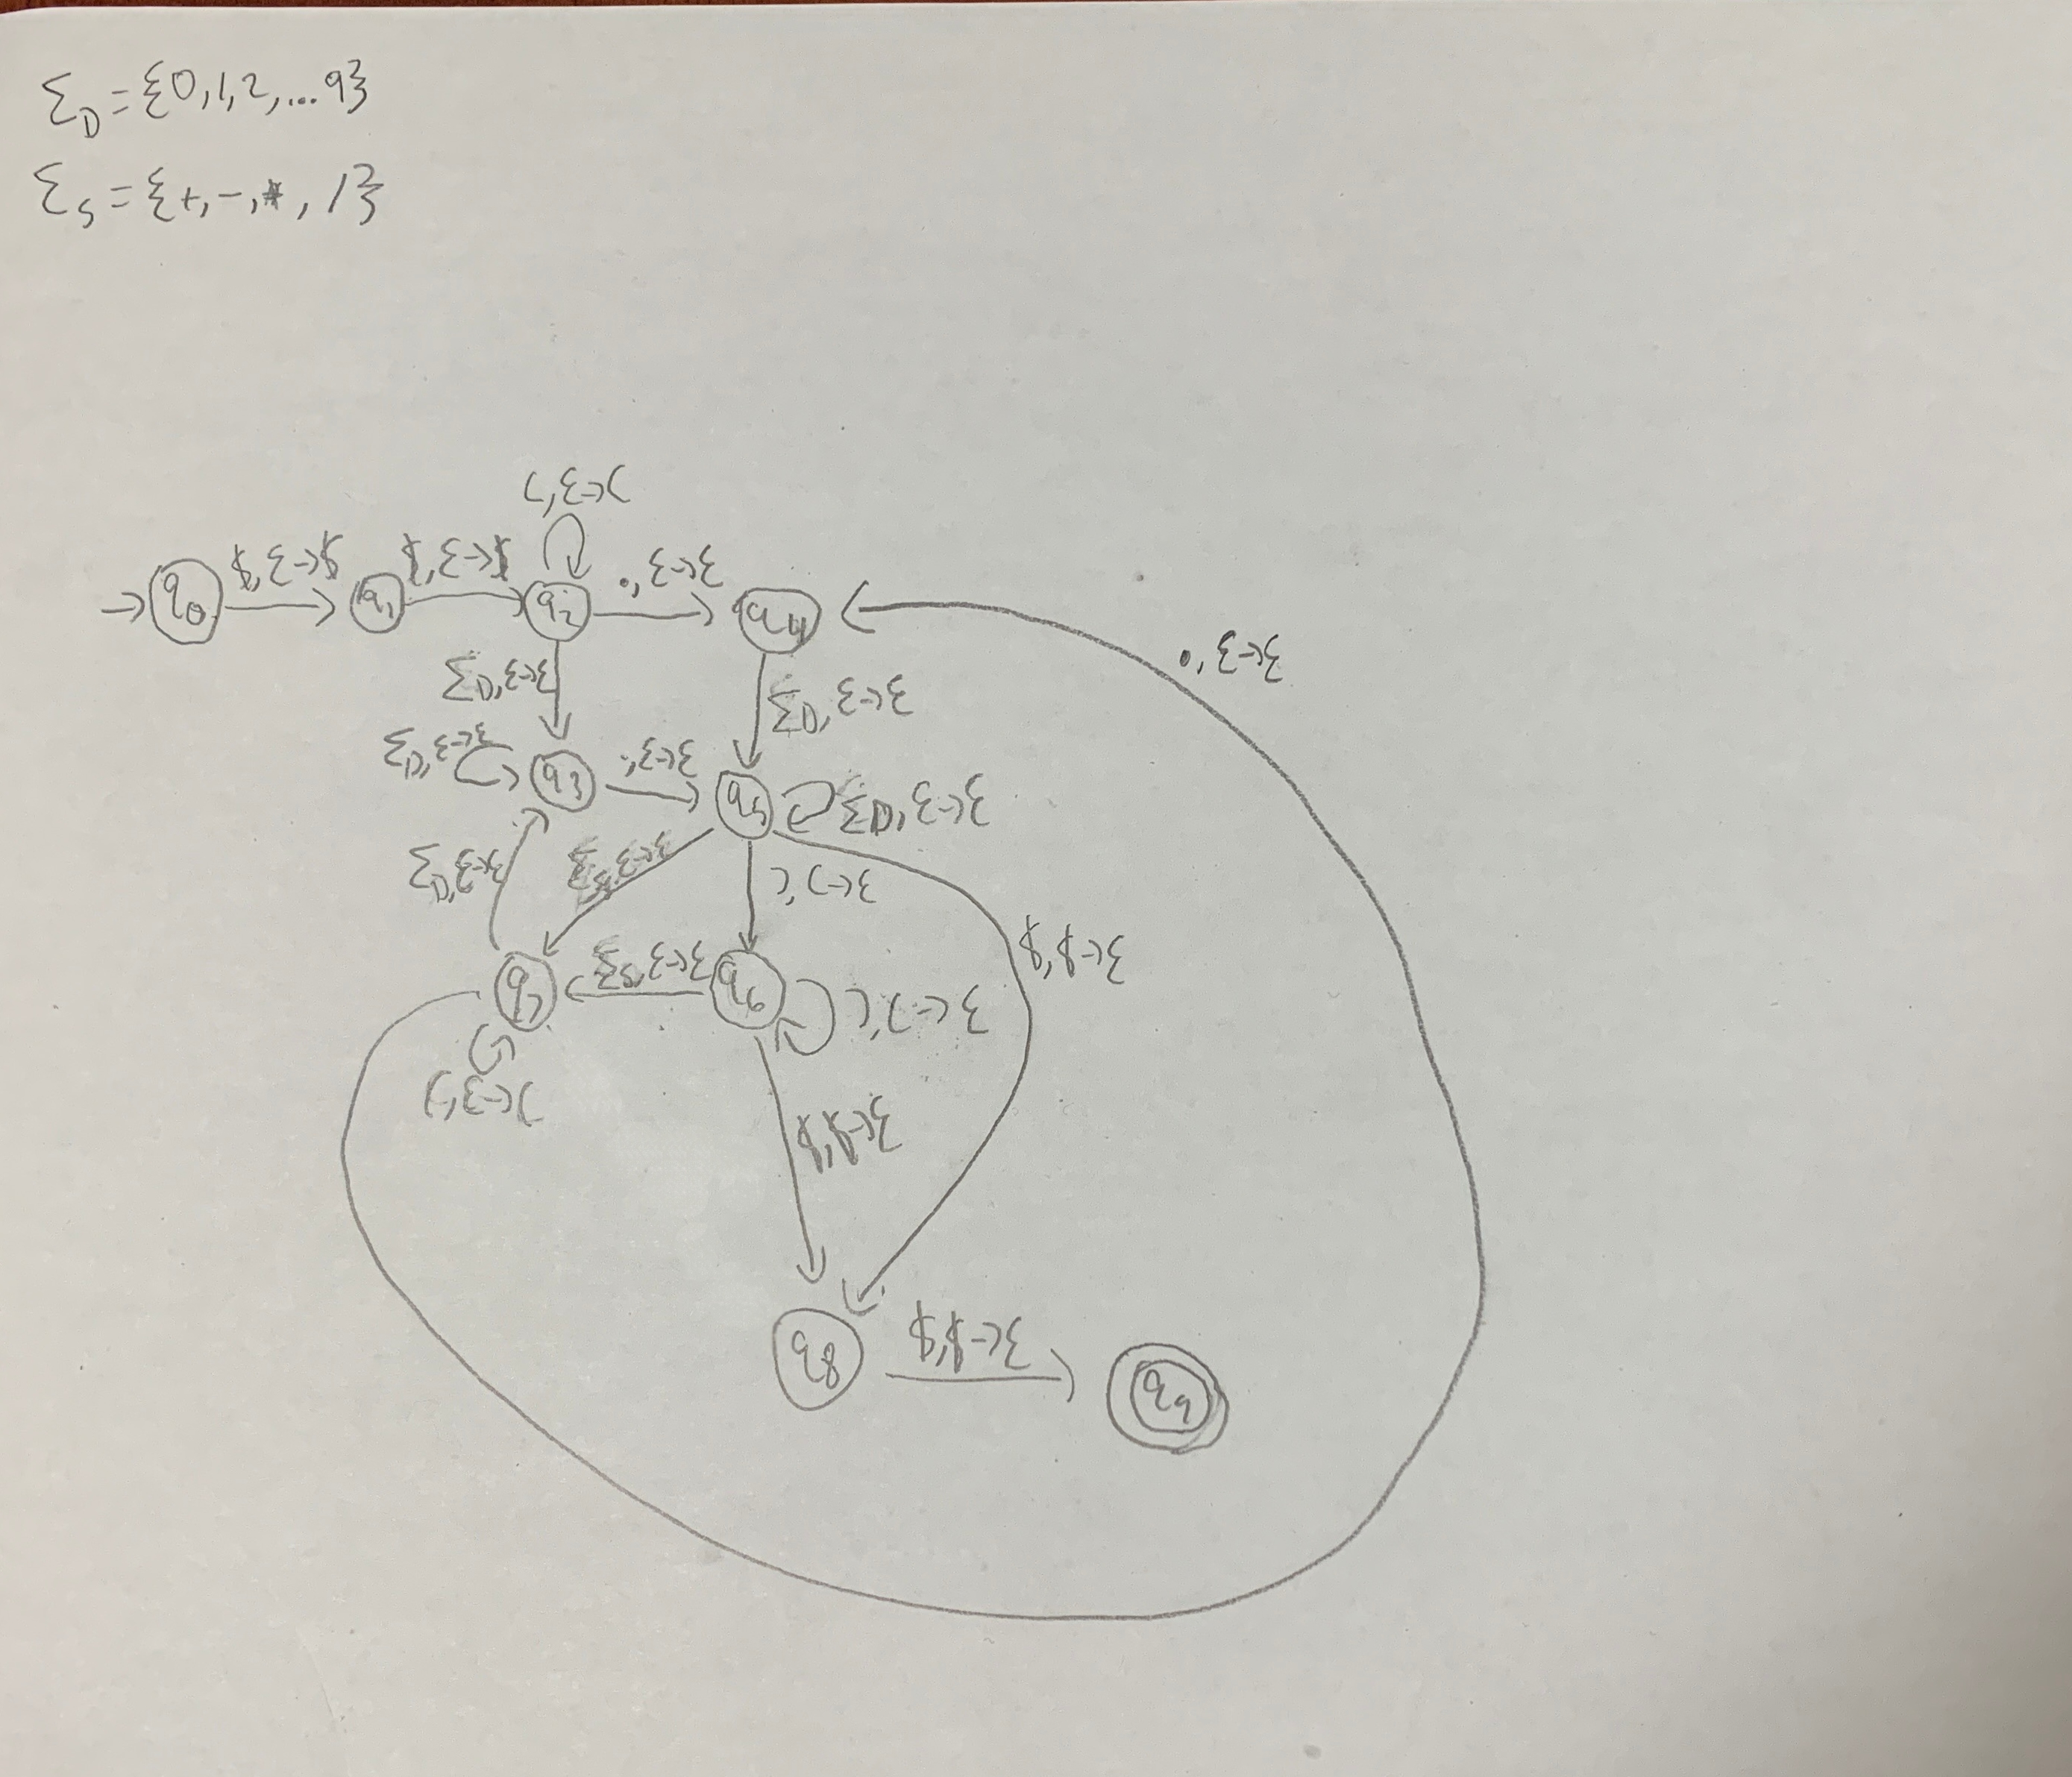 Σ_D = {0,1,2,...9}
Σ_S = {+,-,*,/}
(,ε→(
$,ε→$ $,ε→$ .,ε→ε
q0 q1 q2 q4
.,ε→ε
Σ_D,ε→ε Σ_D,ε→ε
Σ_D,ε→ε q3 .,ε→ε q5 Σ_D,ε→ε
Σ_D,ε→ε Σ_S,ε→ε ),(→ε
$,$→ε
q7 Σ_S,ε→ε q6 ),(→ε
(,ε→(
$,$→ε
q8 $,$→ε q9